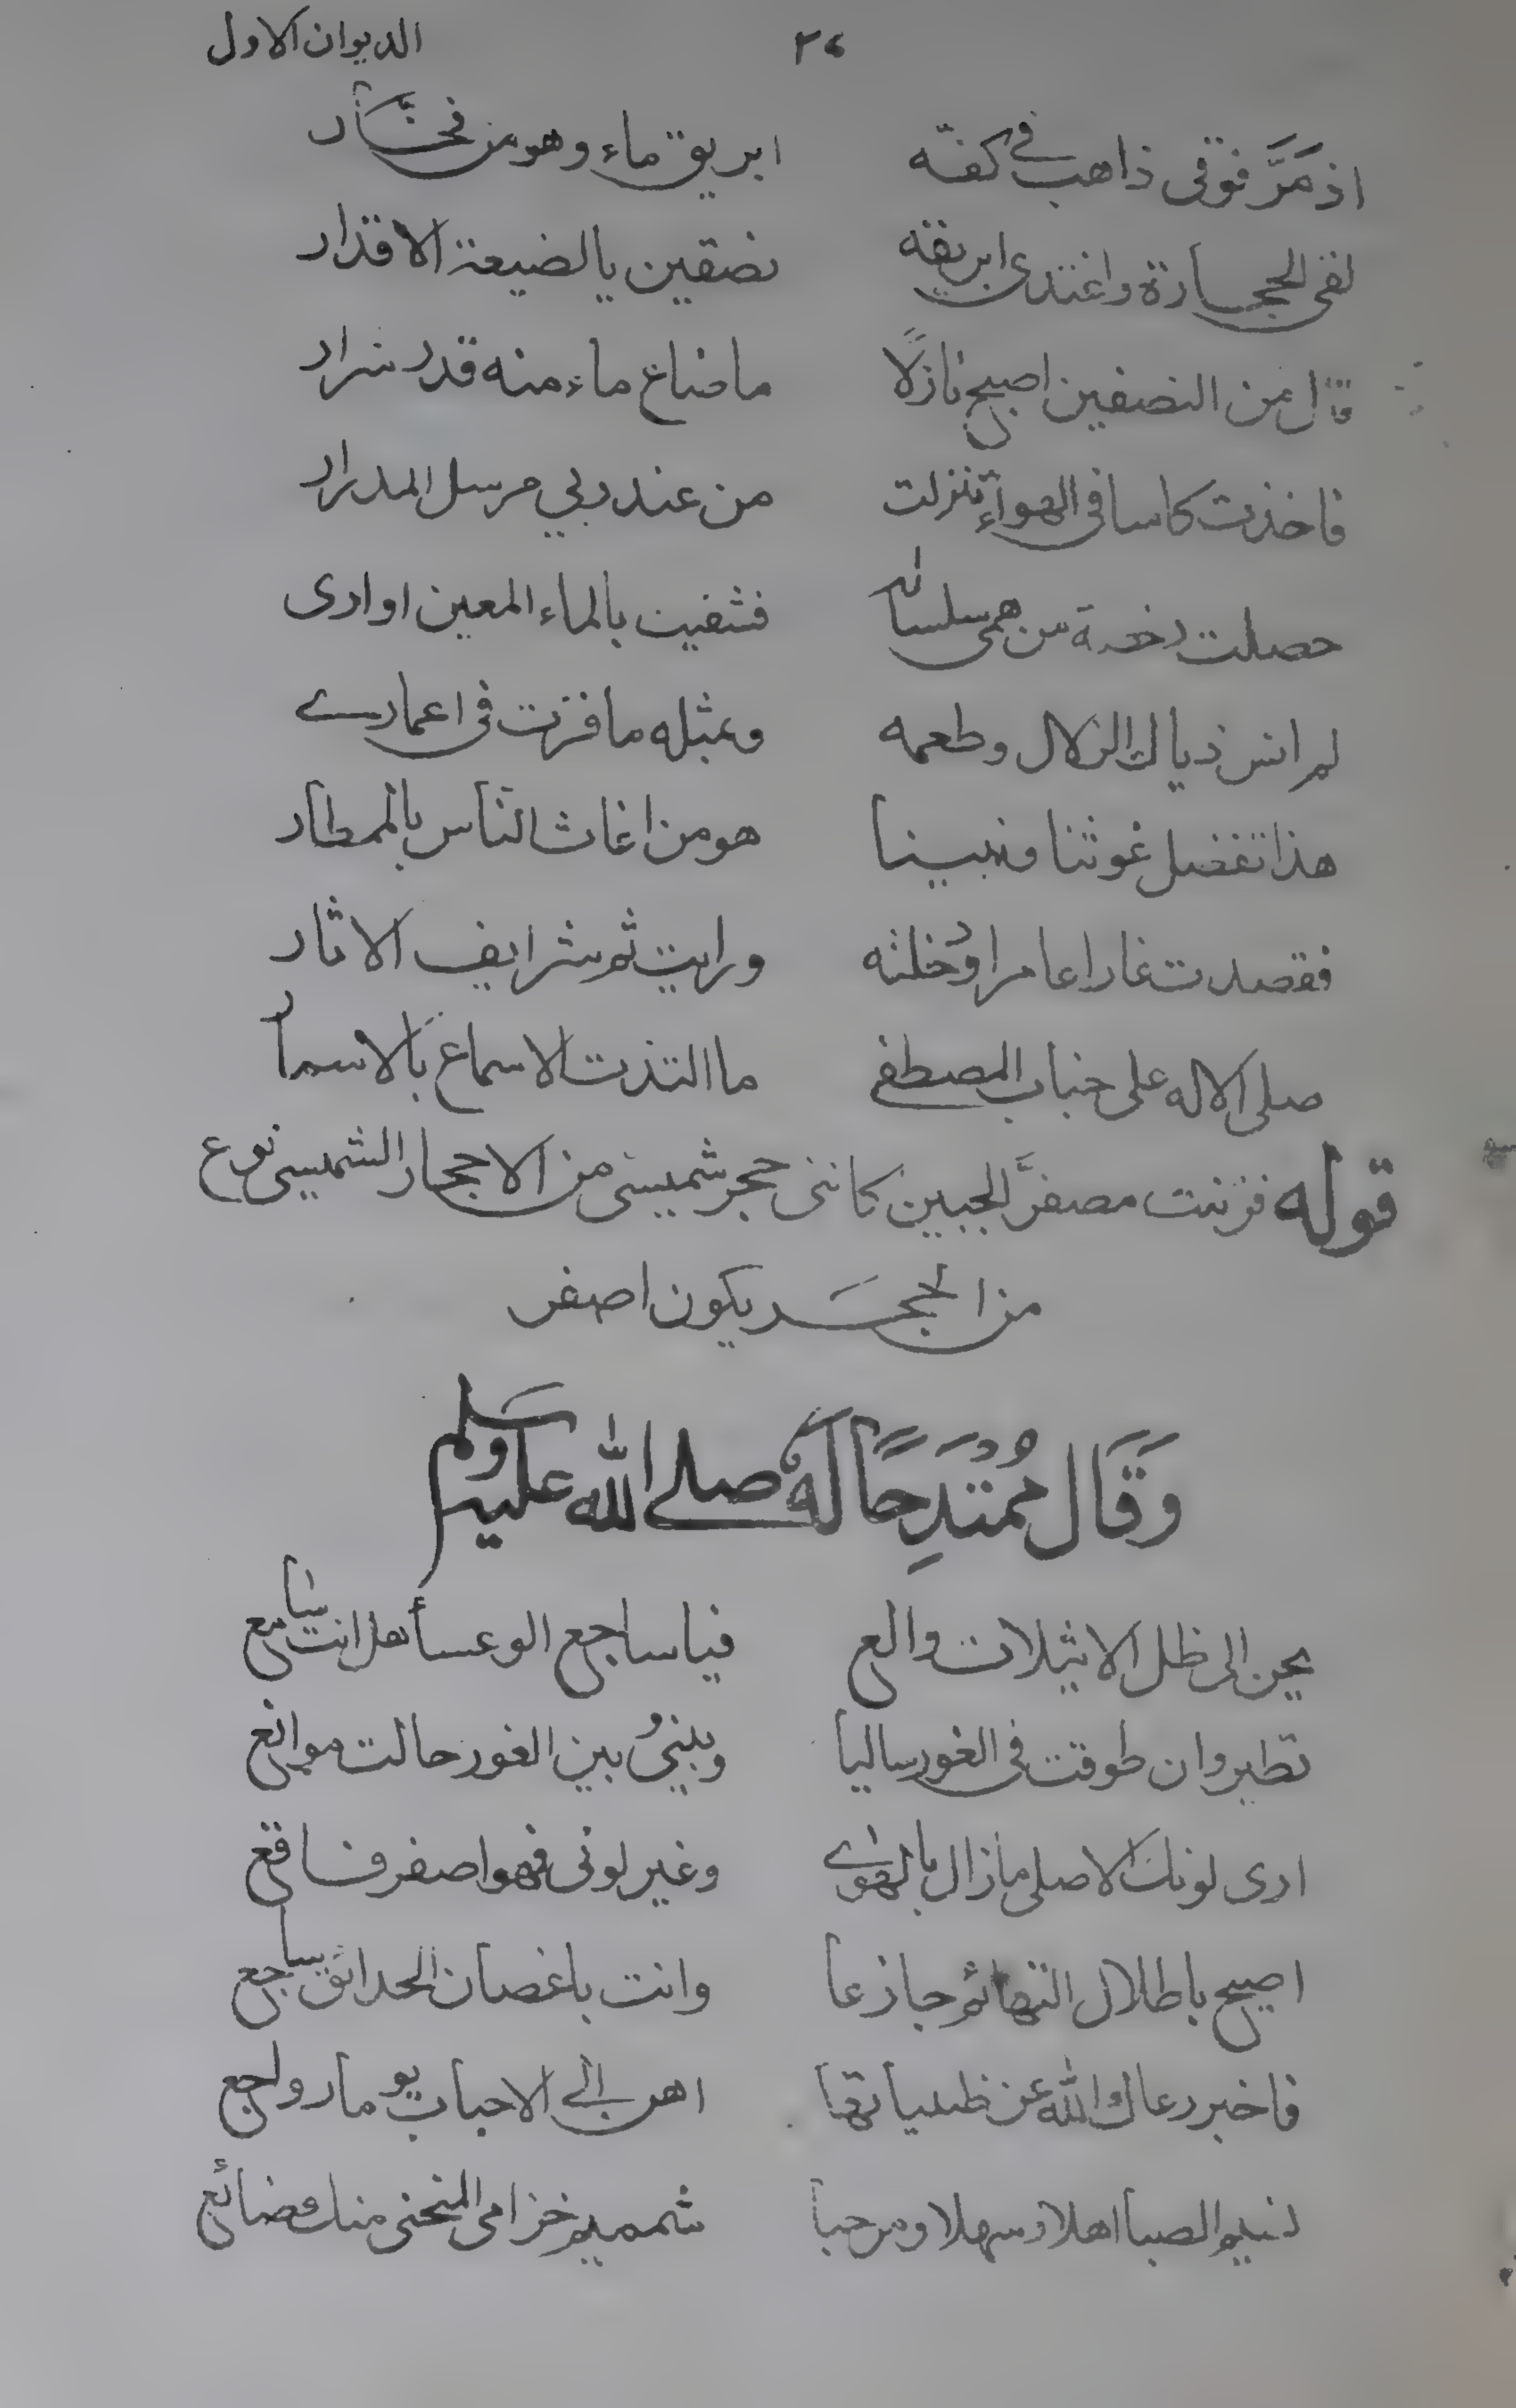 ٢٤ الديوان الاول
اذ مَرَّ فوقى ذاهب فى كفّه ابريق ماء وهو من فخّار
لقى الحجارة واغتدى ابريقه نصفين يا لضيعة الاقدار
قال من النصفين اصبح نازلًا ما ضاع ماء منه قدر شرار
فاخذت كاسا فى الهواء تنزلت من عند ربي مرسل المدرار
حصلت من همى سلساله فشفيت بالماء المعين اوارى
لم انس ذياك الزلال وطعمه وبمثله ما فزت فى اعمارے
هذا تفضل غوثنا ونبينا هو من اغاث الناس بالممطار
فقصدت غارا عامرا ودخلته ورايت ثم شرايف الاثار
صلى الاله على جناب المصطفى ما التذت الاسماع بالاسمار
قوله فزننت مصفرَّ الجبين كاننى حجر شميسى من الاحجار الشميسى نوع
من الحجَر يكون اصفر
وَقَال مُمْتَدِحًا لَهُ صلے الله عليه وسلم
يحن الى ظل الاثيلات والع فيا ساجع الوعسأ هل انت سامع
تطير وان طوقت فى الغور ساليا وبينىُ بين الغور حالت موانع
ارى لونك الاصلى ما زال بالهوىے وغير لونى فهو اصفر فاقع
اصيح باطلال التهائم جازعا وانت باغصان الحدائق ساجع
فاخبر رعاك الله عن ظبياتها اهن الے الاحباب يوما رواجع
نسيم الصبا اهلا وسهلا ومرحبا شميم خزامى المنحنى منك ضائع